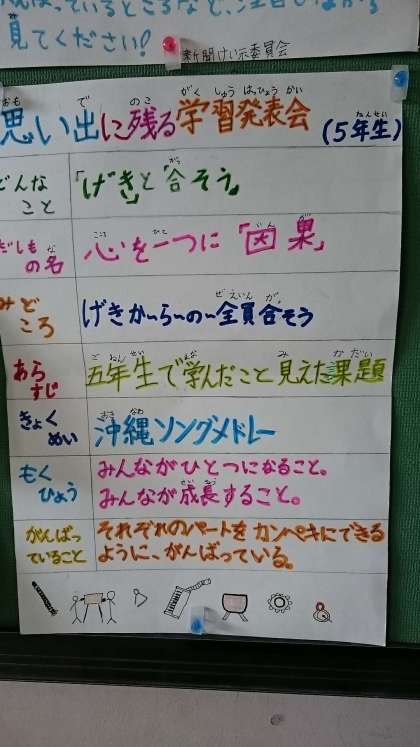 見てください!
新聞けい示委員会
思い出に残る学習発表会 (5年生)
どんなこと 「げき」と「合そう」
だしもの名 心を一つに「因果」
みどころ げきか~ら~の~全員合そう
あらすじ 五年生で学んだこと見えた課題
きょくめい 沖縄ソングメドレー
もくひょう みんながひとつになること。
みんなが成長すること。
がんばっていること それぞれのパートをカンペキにできる
ように、がんばっている。